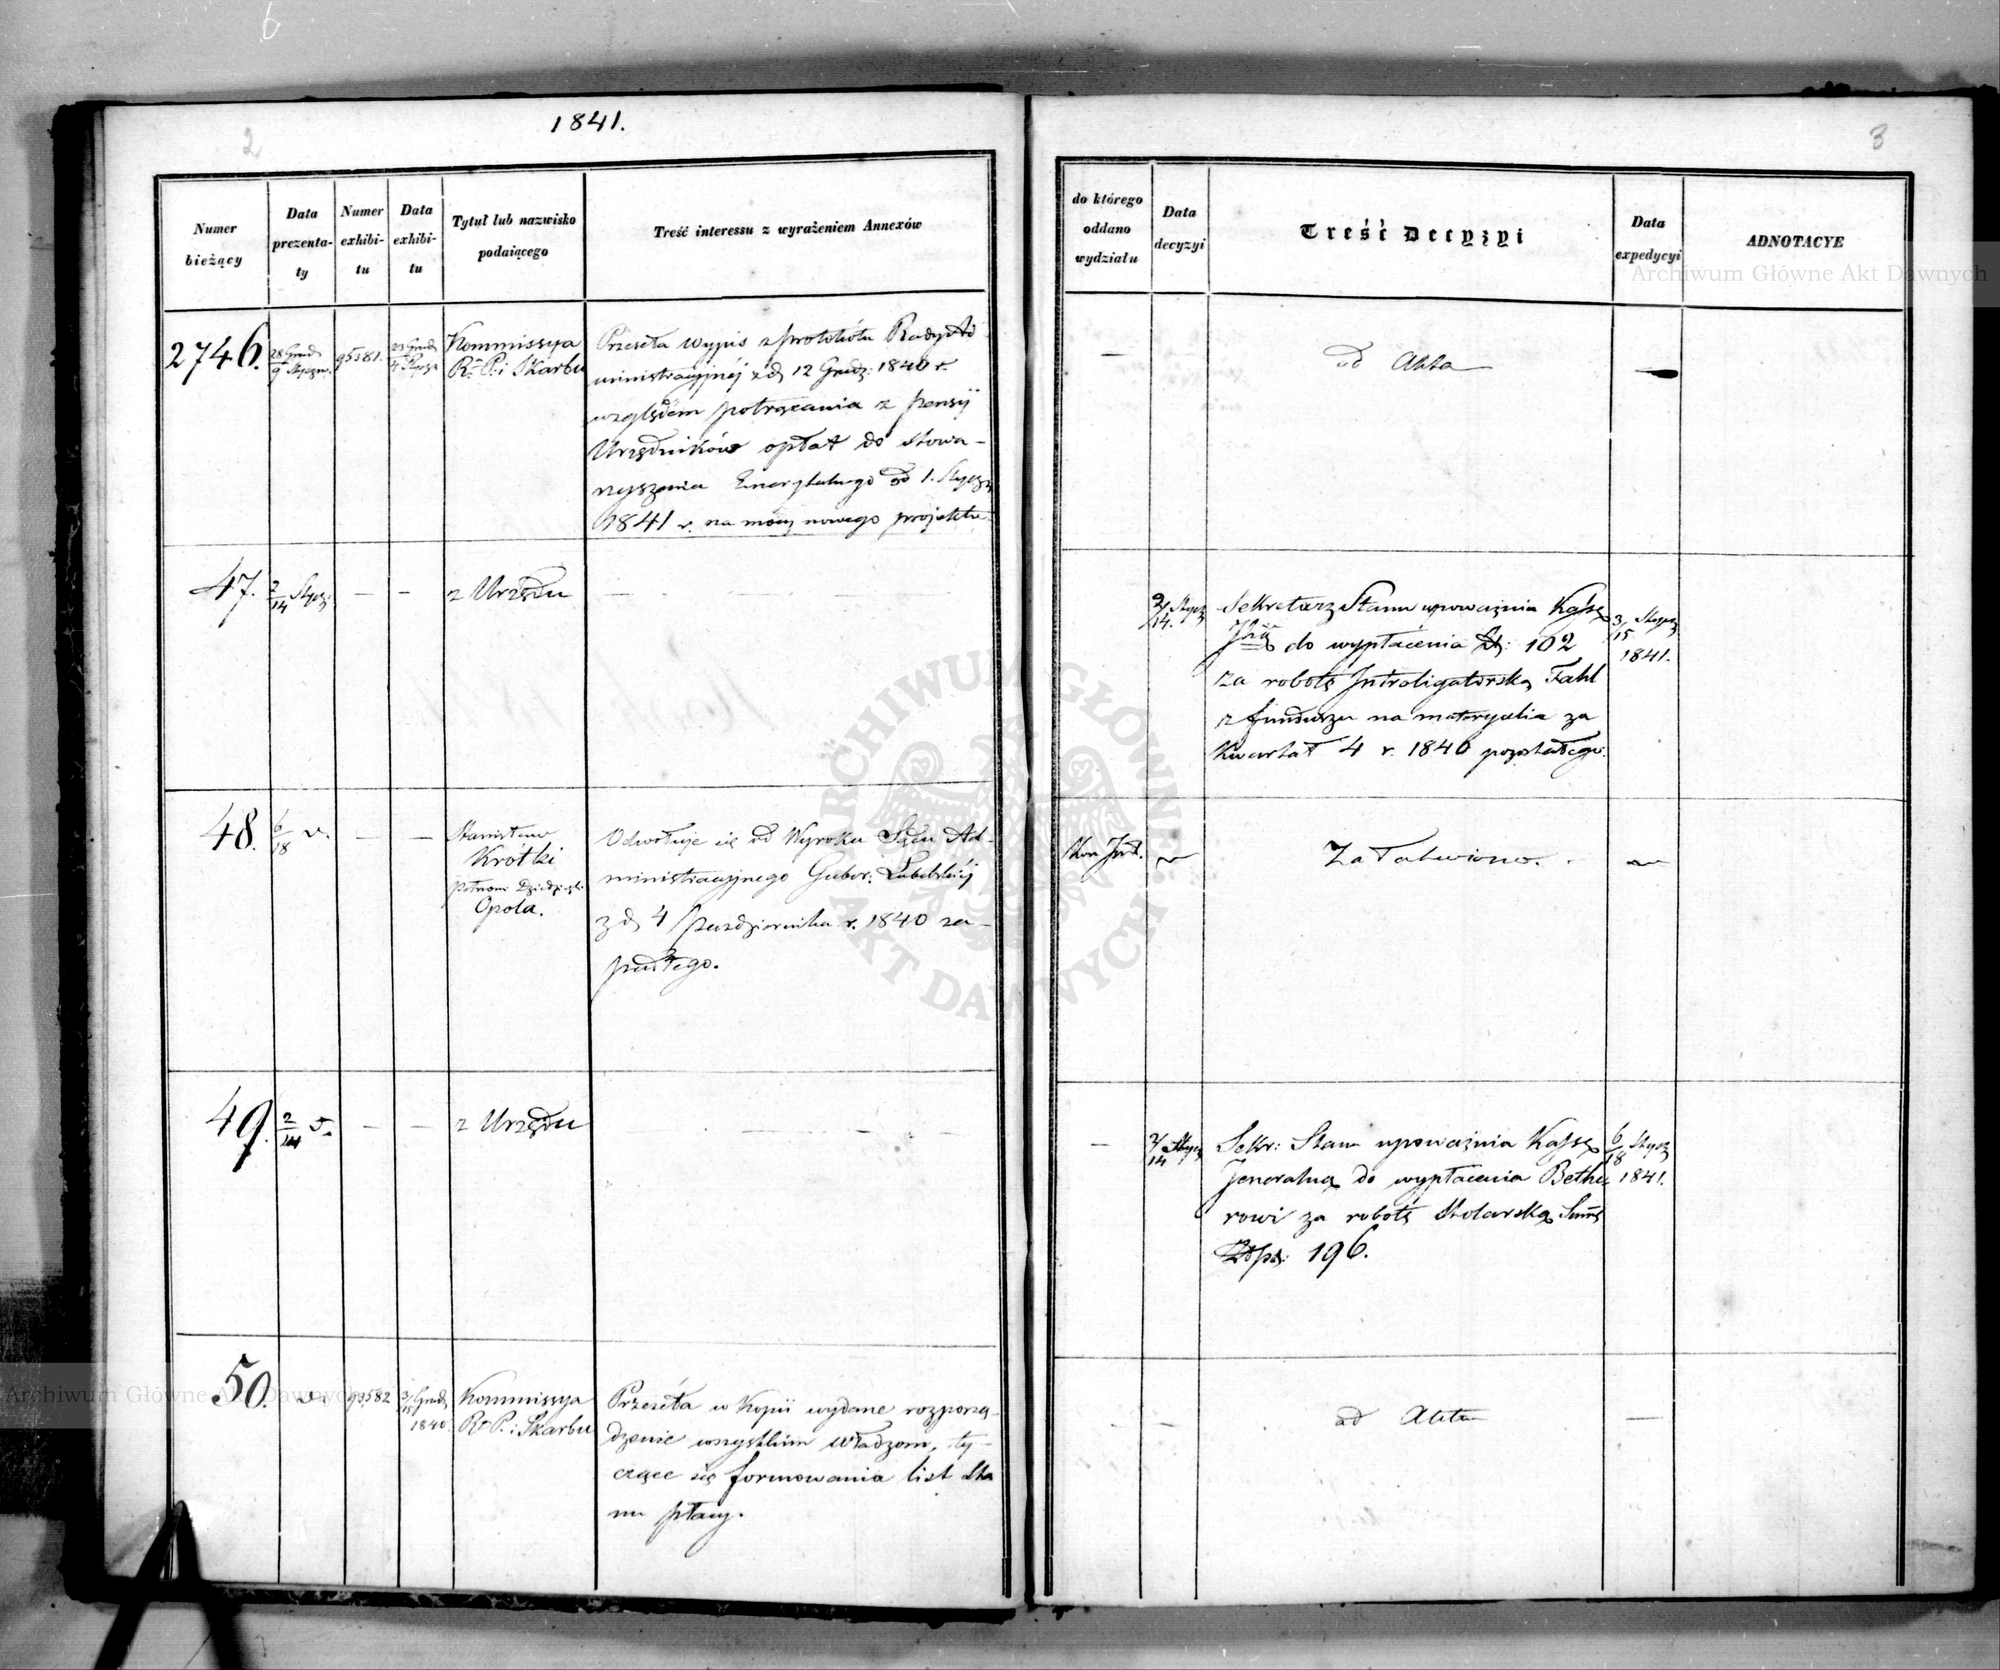 6
1841.
2
3
Numer bieżący
Data prezentaty
Numer exhibitu
Data exhibitu
Tytuł lub nazwisko podaiącego
Treść interessu z wyrażeniem Annexów
do którego oddano wydziału
Data decyzyi
Treść Decyzyi
Data expedycyi
ADNOTACYE
Archiwum Główne Akt Dawnych
2746.
28 Grud.
9 Stycz.
95381.
23 Grud
4 Stycz
Kommissya
R. P. i Skarbu
Przeseła wypis z protokółu Rady Ad-
ministracyjnéj z d. 12 Grudz: 1840 r.
względem potrącania z pensyi
Urzędników opłat do stowa-
rzyszenia Emerytalnego od 1. Stycz
1841 r. na mocy nowego projektu
—
ad Akta
—
47.
2/14 Stycz:
—
—
z Urzędu
— — — —
2/14. Stycz
Sekretarz Stanu upoważnia Kassę
Jlną do wypłacenia Zł: 102
za robotę Introligatorską Fahl
z funduszu na materyalia za
Kwartał 4 r. 1840 pozostałego.
3/15 Stycz
1841.
48.
6/18 v.
—
—
Stanisław
Krótki
pełnom Dziedzi
Opola.
Odwołuje się od Wyroku Sądu Ad-
ministracyjnego Guber: Lubelskiéj
z d. 4 Października r. 1840 za-
padłego.
~
Załatwiono.
~
49.
2/14 v.
—
—
z Urzędu
— — — —
—
2/14 Stycz
Sekr: Stanu upoważnia Kassę
Jeneralną do wypłacenia Bethe
rowi za robotę Stolarską Summę
Złp: 196.
6/18 Stycz
1841.
50.
v.
93582
3/15 Grud
1840.
Kommissya
R. P. i Skarbu
Przeseła w Kopii wydane rozporzą-
dzenie wszystkim Władzom, ty-
czące się formowania list sta
nu płacy.
—
—
ad Akta
—
Archiwum Główne Akt Dawnych
ARCHIWUM GŁÓWNE AKT DAWNYCH